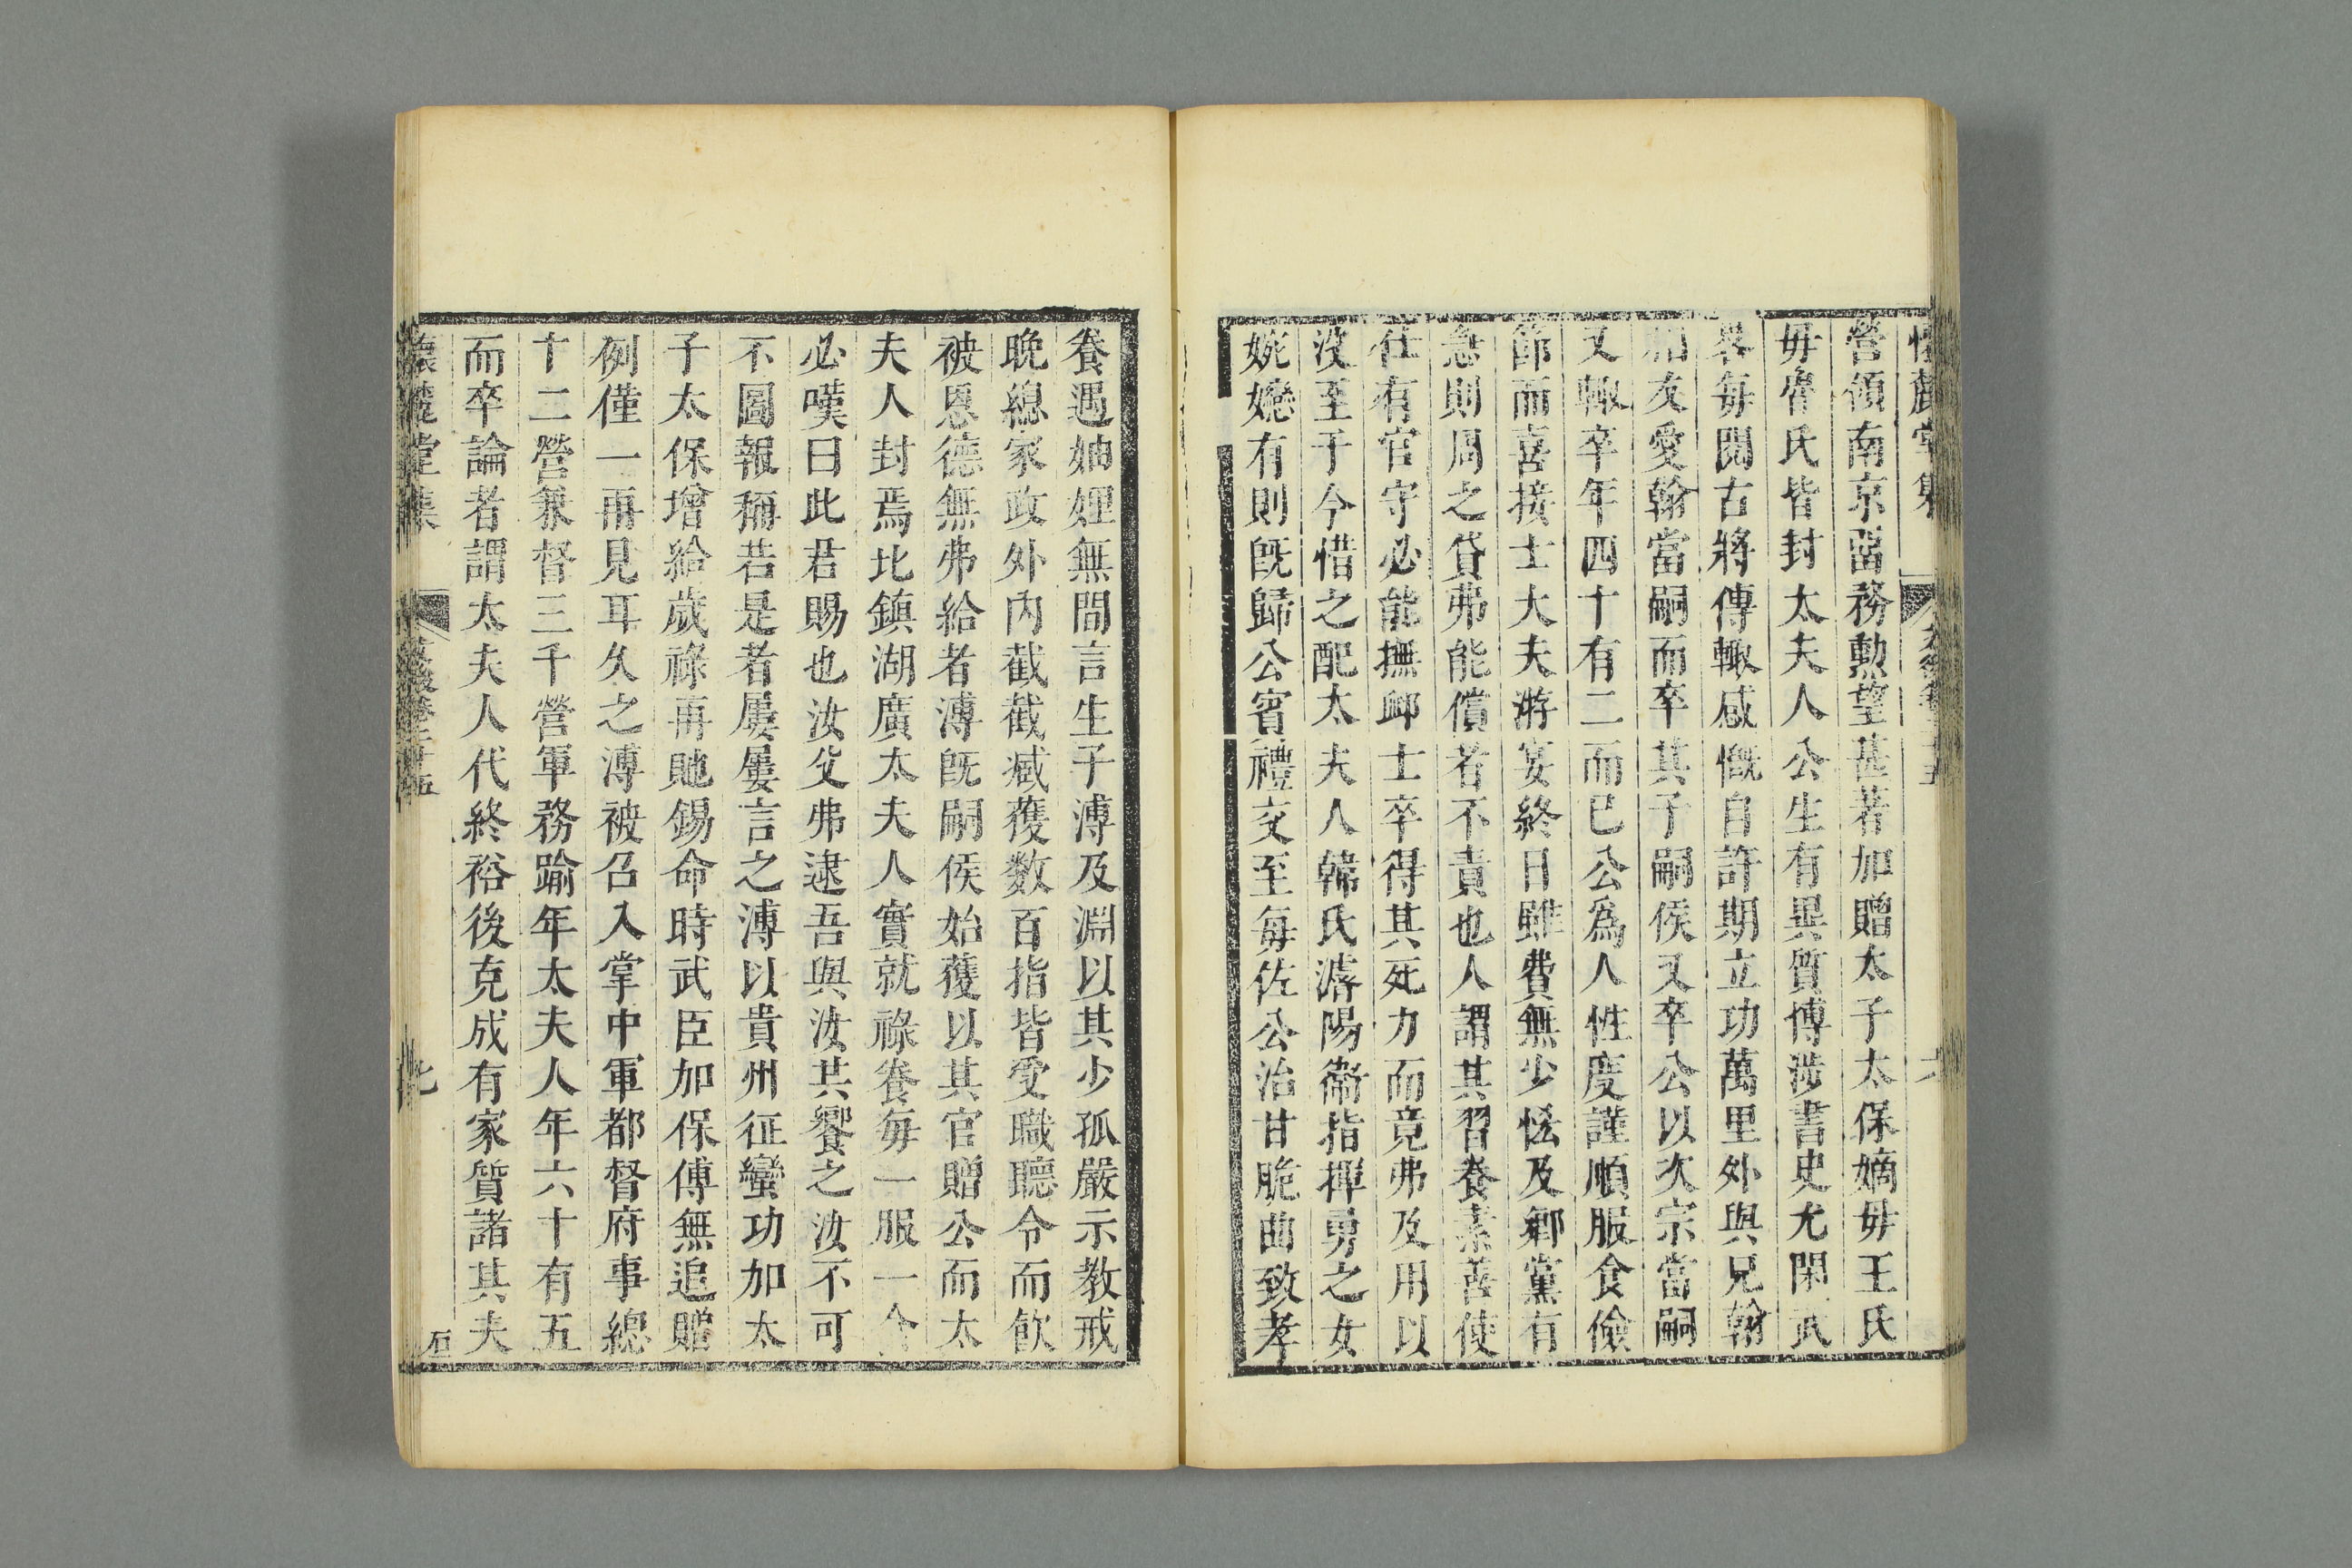 營領南京畱務勲望甚著加贈太子太保嫡毋王氏
毋魯氏皆封太夫人公生有異質博涉書史尤閑武
畧每閱古將傳輙感慨自許期立功萬里外與兄翰
相友愛翰當嗣而卒其子嗣侯又卒公以次宗當嗣
又輙卒年四十有二而已公為人性度謹順服食儉
節而喜接士大夫游宴終日雖費無少恡及鄉黨有
急則周之貸弗能償若不責也人謂其習養素善使
仕有官守必能撫卹士卒得其死力而竟弗及用以
沒至于今惜之配太夫人韓氏瀋陽衞指揮勇之女
婉孌有則旣歸公賓禮交至每佐公治甘脆曲致孝
養遇妯娌無間言生子溥及淵以其少孤嚴示教戒
晚總家政外內截截臧獲数百指皆受職聽令而飲
被恩德無弗給者溥旣嗣侯始獲以其官贈公而太
夫人封焉比鎮湖廣太夫人實就祿養每一服一食
必嘆曰此君賜也汝父弗逮吾與汝共饗之汝不可
不圖報稱若是者屢屢言之溥以貴州征蠻功加太
子太保增給歲祿再貤錫命時武臣加保傅無追贈
例僅一再見耳久之溥被召入掌中軍都督府事總
十二營兼督三千營軍務踰年太夫人年六十有五
而卒論者謂太夫人代終裕後克成有家質諸其夫
懷麓堂集 文後卷二十五 七 石